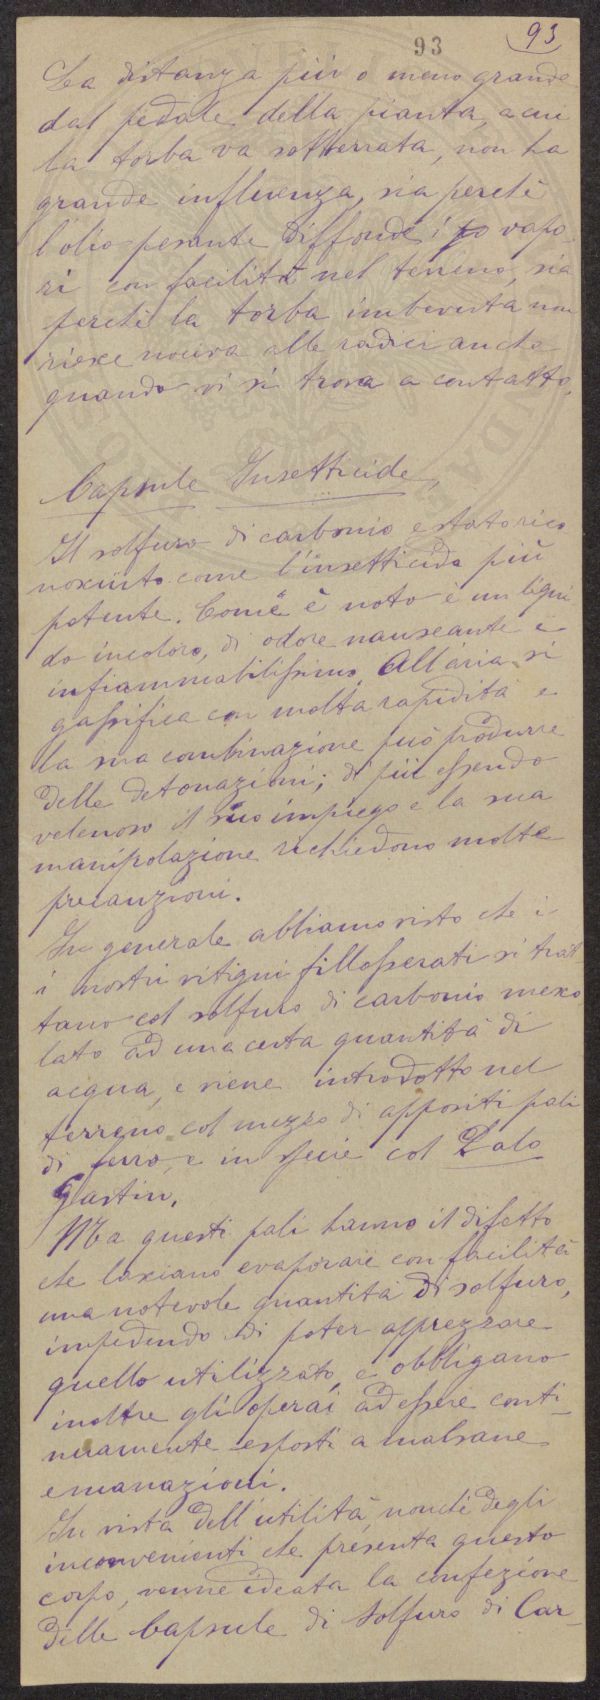 93
93
La distanza più o meno grande
dal pedale della pianta, a cui
la torba va sotterrata, non ha
grande influenza, sia perchè
l'olio pesante diffonde i vapo
ri con facilità nel terreno, sia
perchè la torba imbevuta non
riesce nociva alle radici anche
quando vi si trova a contatto.
Capsule Insetticide,
Il solfuro di carbonio e stato rico
nosciuto come l'insetticida più
potente. Come è noto è un liqui
do incoloro, di odore nauseante e
infiammabilissimo. All'aria si
gassifica con molta rapidità e
la sua combinazione può produrre
delle detonazioni; di più essendo
velenoso il suo impiego e la sua
manipolazione richiedono molte
precauzioni.
In generale abbiamo visto che i
i nostri vitigni fillosserati si trat
tano col solfuro di carbonio mesco
lato ad una certa quantità di
acqua, e viene introdotto nel
terreno col mezzo di appositi pali
di ferro, e in specie col Palo
Gastin.
Ma questi pali hanno il difetto
che lasciano evaporare con facilità
una notevole quantità di solfuro,
impedendo di poter apprezzare
quello utilizzato, e obbligano
inoltre gli operai ad essere conti_
nuamente esposti a malsane
emanazioni.
In vista dell'utilità, nonchè degli
inconvenienti che presenta questo
corpo, venne ideata la confezione
delle Capsule di Solfuro di Car_